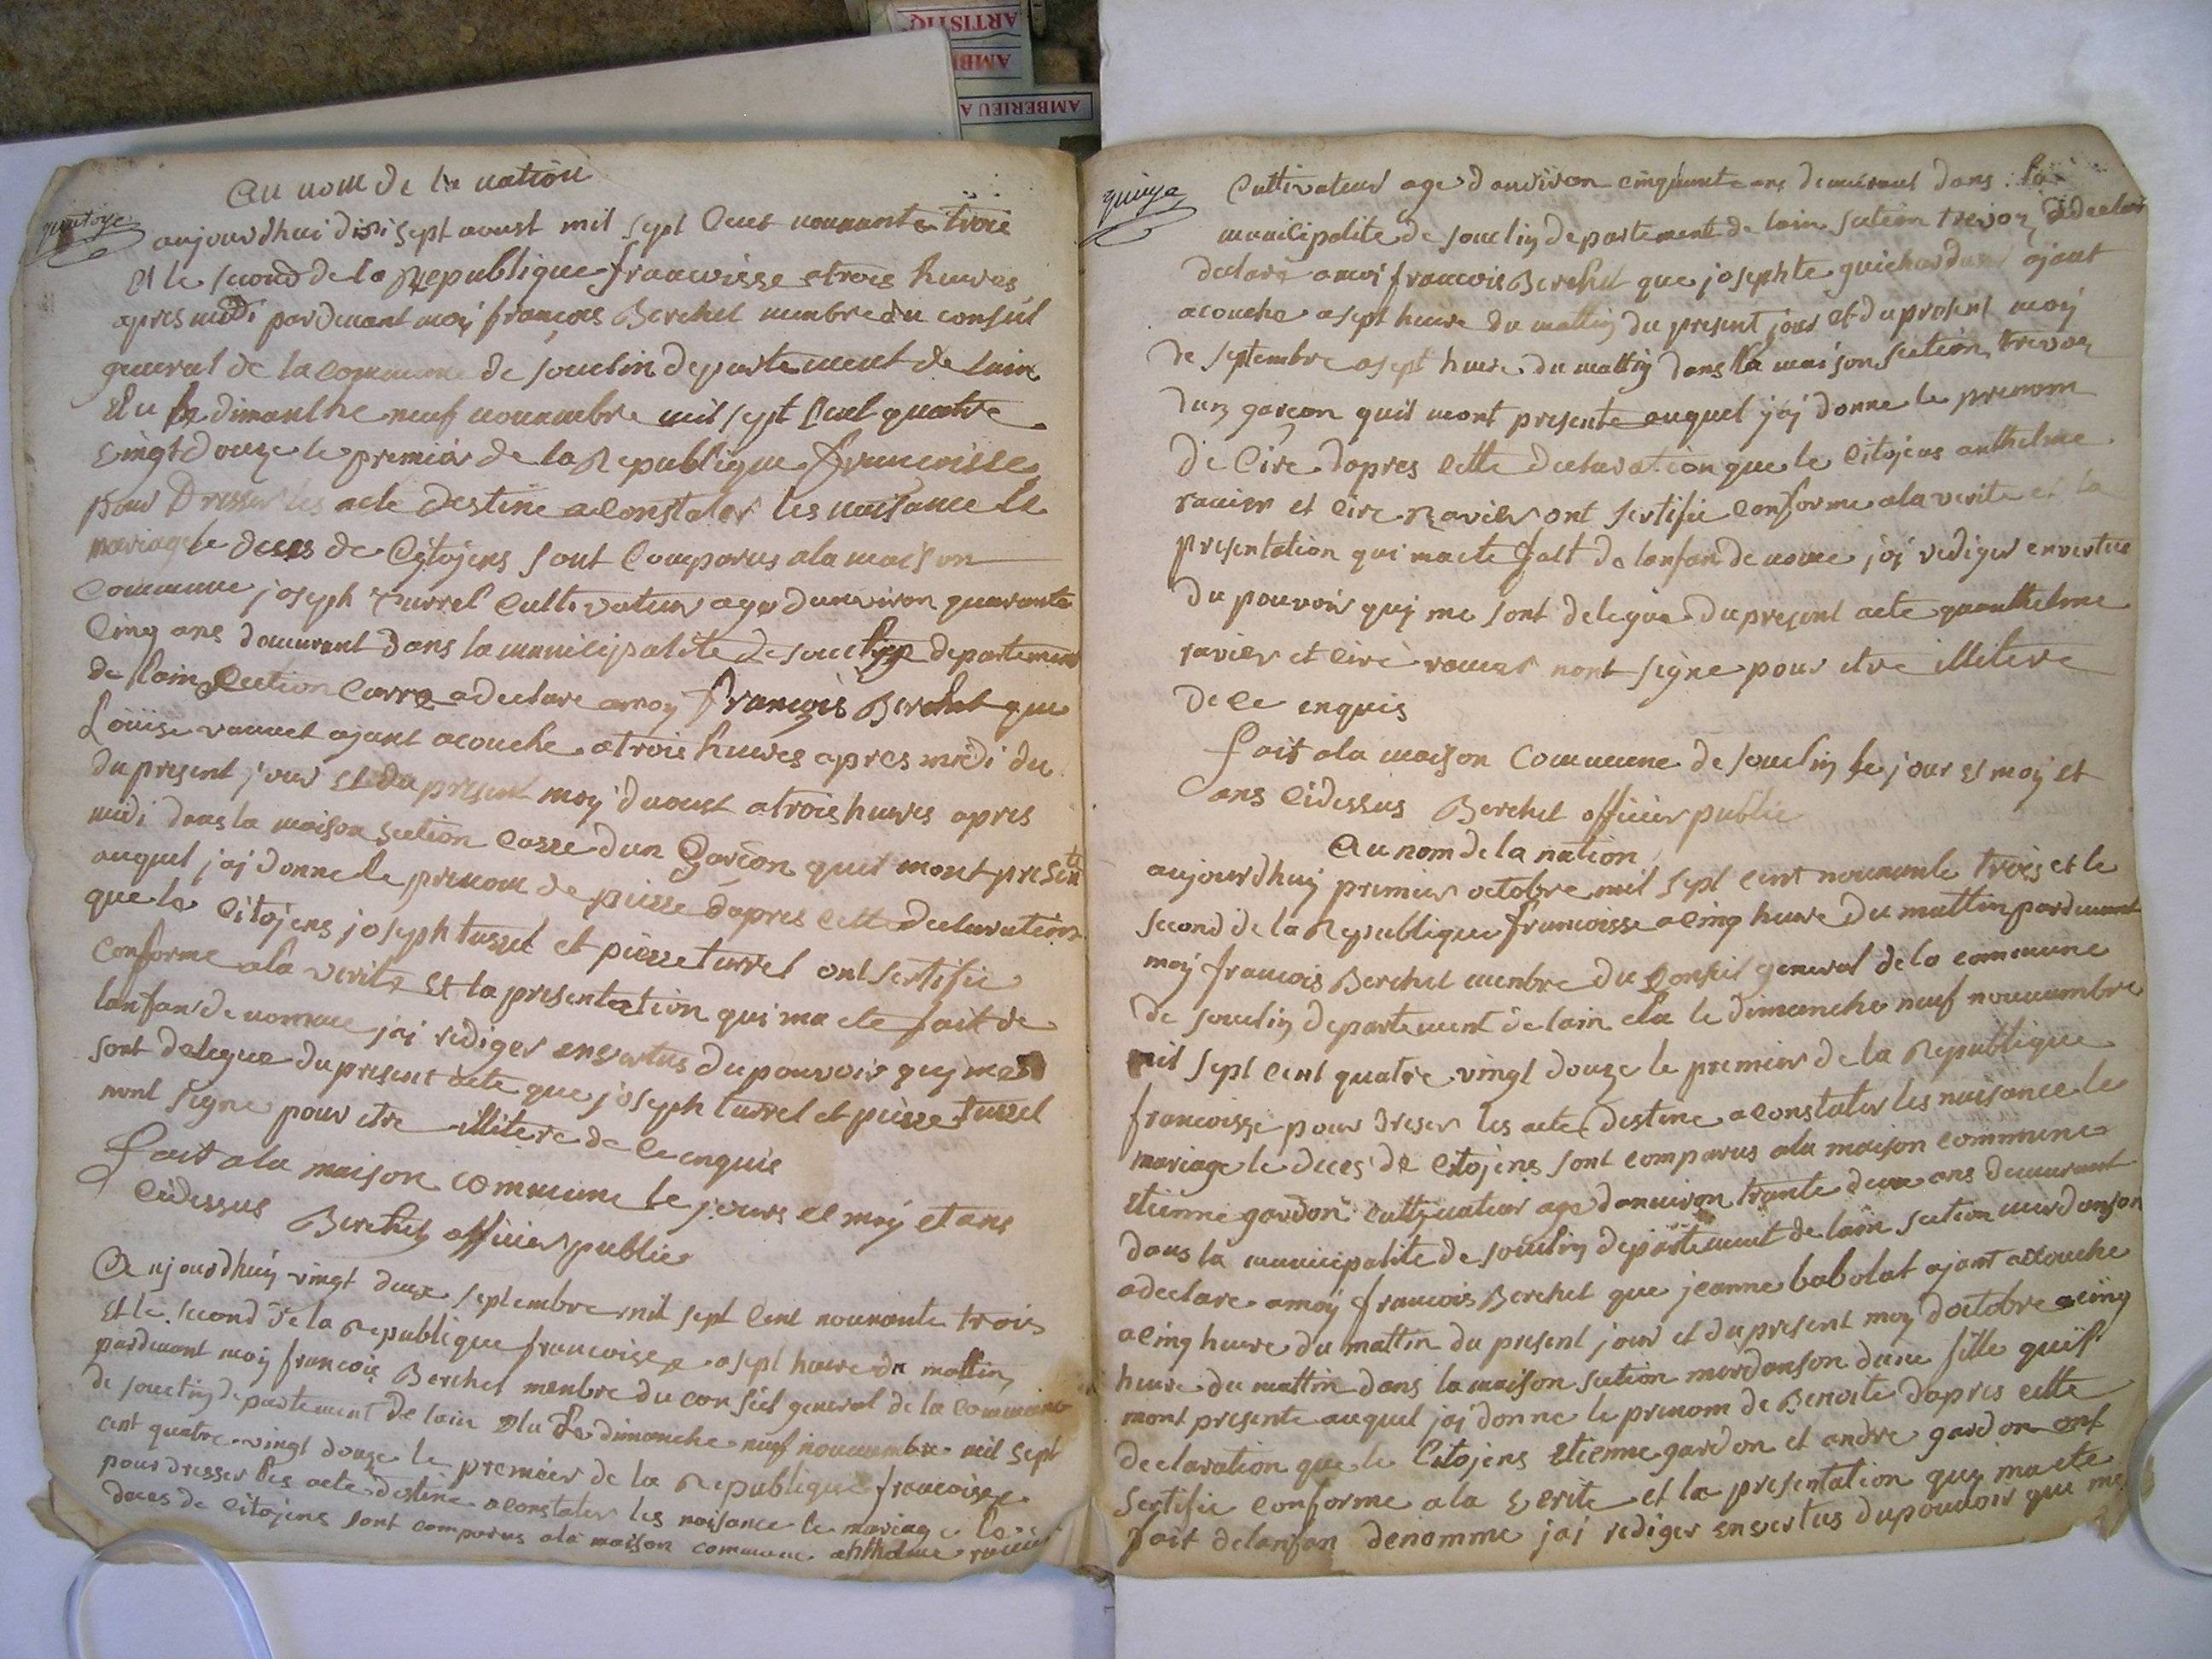 ARTISTIQ
AMBE
AMBERIEU A
quatorze
Au nom de la nation
aujourdhui dixi sept aoust mil sept Cent nonnante trois
et le second de la Republique francoisse a trois heures
apres midi pardevant moy françois Berchet menbre du conseil
general de la commune de souclin departement de lain
Elu le dimanche neuf nouvembre mil sept Cent quatre
vingt douze le premier de la Republique francoisse
pour Dresser les acte destine a constater les naisance le
mariage le deces de Citojens sont Comparus a la maison
Commune joseph turrel Cultivateur age danviron quarante
Cinq ans demeurant dans la municipalite de souclin departement
de lain section Carre a declare a moy françois Berchet que
Louise vannet ajant acouche a trois heures apres midi du
du present jour et du present moy daoust a trois heures apres
midi dans la maison section Carre dun Garcon quil mont presente
auquel jai donne le prenom de pierre dapres cette declaration
que le Citojens joseph turrel et pierre turrel ont sertifie
conforme a la verite et la presentation qui ma ete fait de
lanfan denomme jai rediger en vertus du pouvoir quj me
sont delegue du present acte que joseph turrel et pierre turrel
nont signe pour etre illitere de ce enquis
fait a la maison commune le jours et moy et ans
Cidessus Berchet officier public
Aujourdhuy vingt deux septembre mil sept Cent nonnante trois
et le second de la Republique francoise a sept heure du mattin
pardevant moy francois Berchet menbre du conseil general de la commune
de souclin departement de lain elu le dimanche neuf nouvembre mil sept
cent quatre vingt douze le premier de la Republique francoise
pour dresser les acte destine a constater les naisance le mariage le
deces de Citojens sont comparus a la maison commune anthelme ravier
quinze
Cultivateur age danviron cinquante ans demeurant dans la
municipalite de souclin departement de lain section trevon a declare
declara a moi francois Berchet que josephte guichardan ajant
acouche a sept heure du mattin du present jour et du present moy
de septembre a sept heure du mattin dans la maison section trevon
dun garcon quil mont presente auquel jaj donne le prenom
de Cire dapres cette declaration que le Citojens anthelme
ravier et Cire ravier ont sertifie conforme a la verite et la
presentation qui ma ete fait de lanfan denome jaj rediger en vertue
du pouvoir quj me sont delegue du present acte quanthelme
ravier et Cire ravier nont signe pour etre illitere
de ce enquis
fait a la maison Commune de souclin le jour et moy et
ans Cidessus Berchet officier public
Au nom de la nation
aujourdhuy premier octobre mil sept cent nonnante trois et le
second de la Republique francoisse a cinq heure du mattin pardevant
moy francois Berchet menbre du Conseil general de la commune
de souclin departement de lain elu le dimanche neuf nouvembre
mil sept cent quatre vingt douze le premier de la Republique
francoisse pour dreser les acte destine a constater les naisance le
mariage le deces de Citojens sont comparus a la maison commune
etienne gardon cultivateur age danviron trante deux ans demeurant
dans la municipalite de souclin departement de lain section merdanson
a declare a moy francois Berchet que jeanne babolat ajant acouche
a cinq heure du mattin du present jour et du present moy doctobre a cinq
heure du mattin dans la maison section merdanson dune fille quil
mont presente auquel jaj donne le prenom de Benoite dapres cette
declaration que le Citojens etienne gardon et andre gardon ont
sertifie conforme a la verite et la presentation quj ma ete
fait de lanfan denomme jai rediger en vertus du pouvoir que me